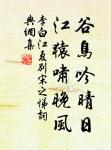 谷鳥吟晴日
江猿嘯晚風
李白江夏别宋之悌詞
典網集